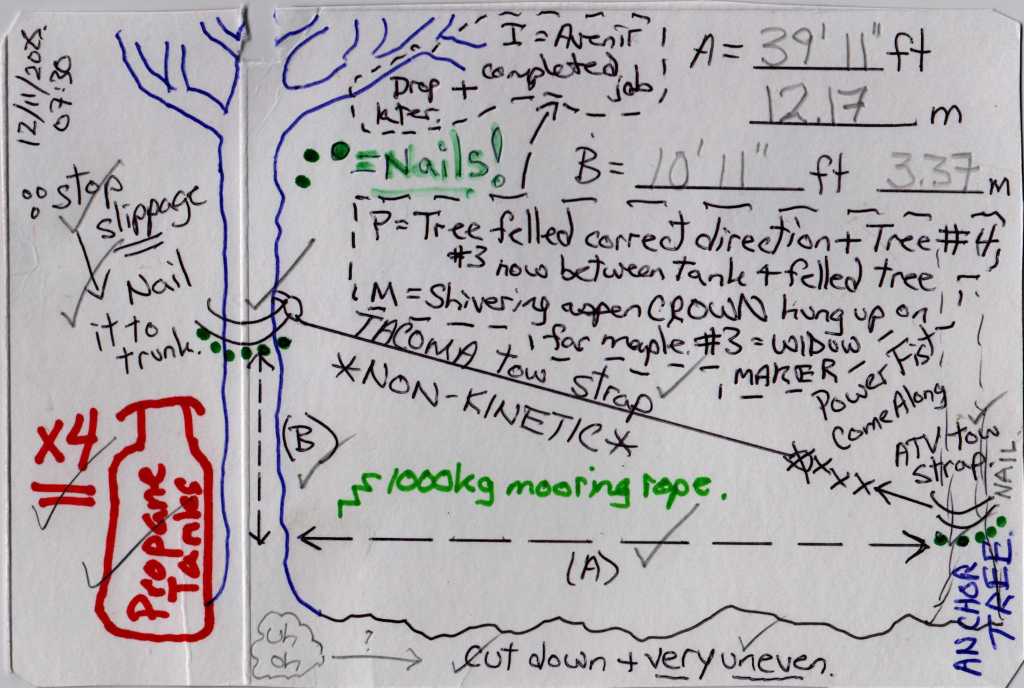 12/11/2018.
07:30
I = Avenir
completed
job
Drop +
later.
A = 39' 11" ft
12.17 m
= Nails!
B = 10' 11" ft 3.37 m
stop
slippage
Nail
it to
trunk.
P = Tree felled correct direction + Tree #4,
#3 now between tank + felled tree
M = Shivering aspen CROWN hung up on
far maple. #3 = WIDOW
MAKER
TACOMA tow strap
*NON-KINETIC*
Power Fist
Come Along
ATV tow
strap.
NAIL
(B)
x4
Propane
Tanks
1000kg mooring rope.
(A)
ANCHOR
TREE.
uh
oh
?
cut down + very uneven.